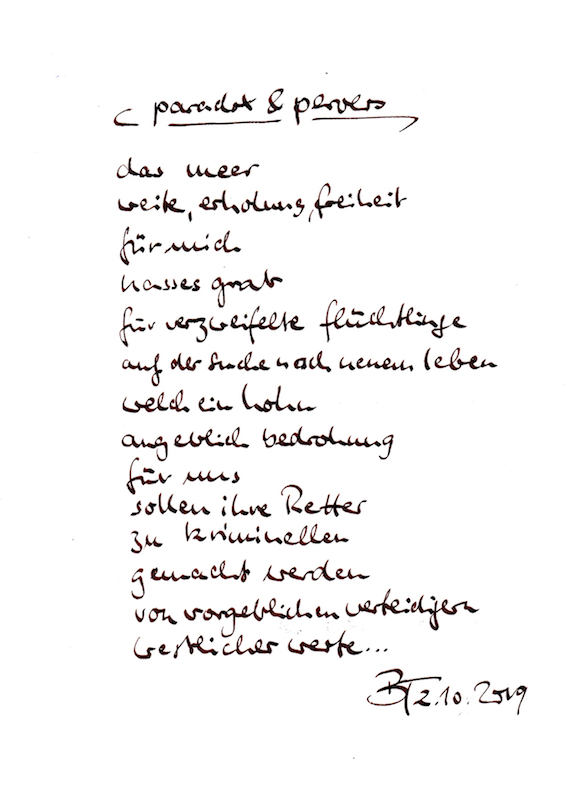 paradox & pervers
das meer
weite, erholung, freiheit
für mich
nasses grab
für verzweifelte flüchtlinge
auf der suche nach neuem leben
welch ein hohn
angeblich bedrohung
für uns
sollen ihre Retter
zu kriminellen
gemacht werden
von vorgeblichen verteidigern
westlicher werte...
BT 2.10.2019